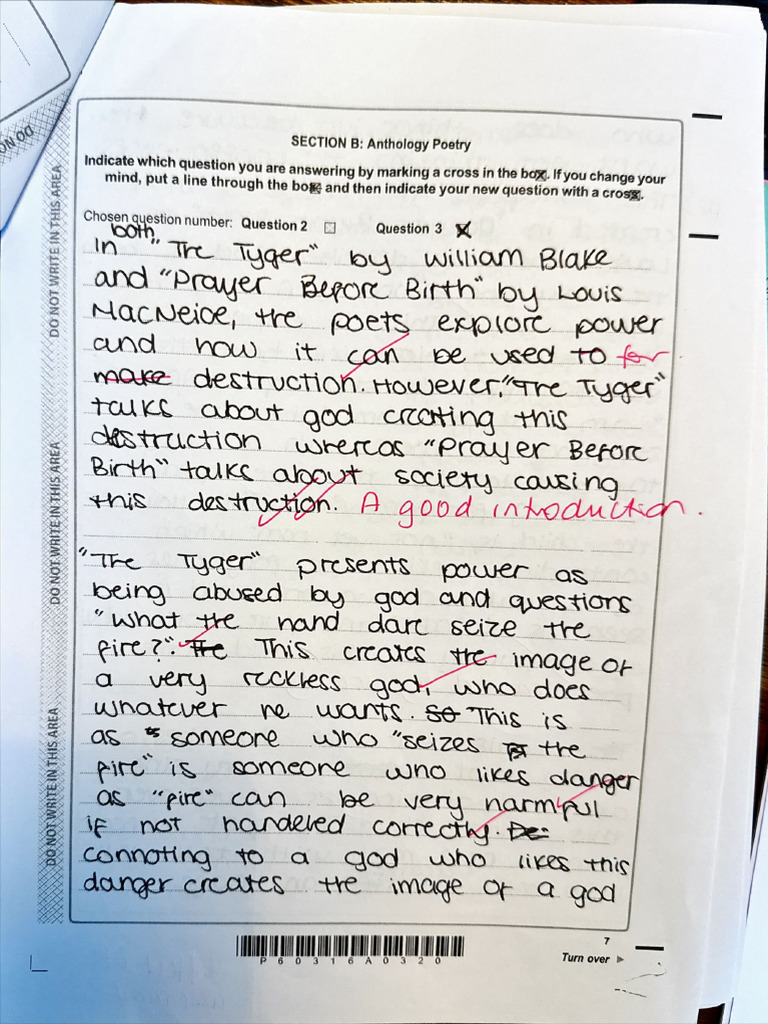 DO NO
SECTION B: Anthology Poetry
Indicate which question you are answering by marking a cross in the box ☒. If you change your
mind, put a line through the box and then indicate your new question with a cross ☒.
Chosen question number: Question 2 ☐ Question 3 ☒
both
In "The Tyger" by William Blake
and "Prayer Before Birth" by Louis
MacNeice, the poets explore power
and how it can be used to for
make destruction. However, "The Tyger"
talks about god creating this
destruction whereas "Prayer Before
Birth" talks about society causing
this destruction. A good introduction.
"The Tyger" presents power as
being abused by god and questions
"what the hand dare seize the
fire?". The This creates the image of
a very reckless god, who does
whatever he wants. So This is
as someone who "seizes the
fire" is someone who likes danger
as "fire" can be very harmful
if not handeled correctly. De-
connoting to a god who likes this
danger creates the image of a god
DO NOT WRITE IN THIS AREA
DO NOT WRITE IN THIS AREA
DO NOT WRITE IN THIS AREA
7
P60316A0320
Turn over ▶